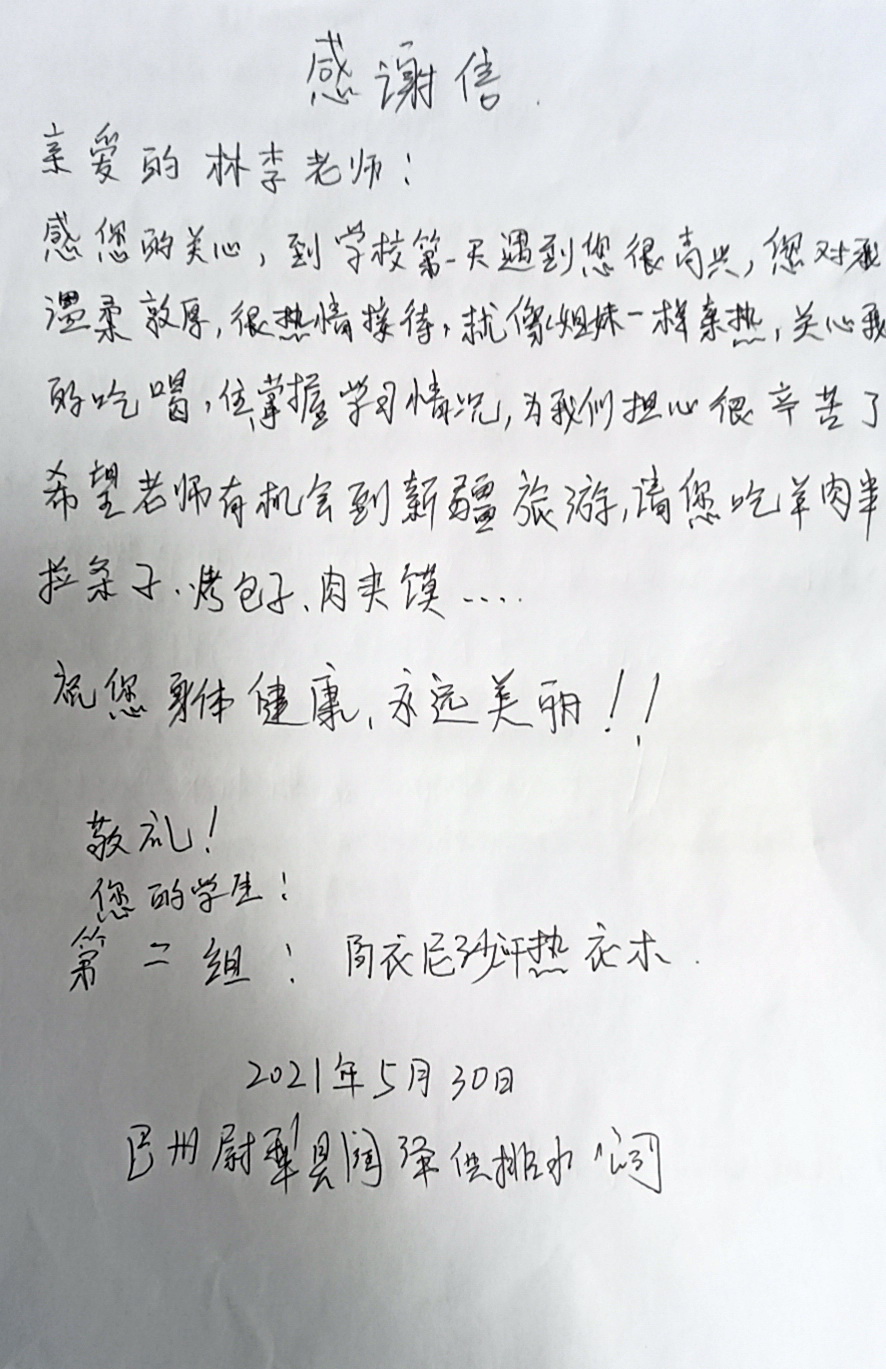 感谢信.
亲爱的林李老师：
感您的关心，到学校第一天遇到您很高兴，您对我
温柔敦厚，很热情接待，就像姐妹一样亲热，关心我
的吃喝，住，掌握学习情况，为我们担心很辛苦了
希望老师有机会到新疆旅游，请您吃羊肉串
拉条子、烤包子、肉夹馍....
祝您身体健康，永远美丽！！
敬礼！
您的学生：
第二组：衣尼沙汗热衣木.
2021年5月30日
巴州尉犁县阔泽供排水公司